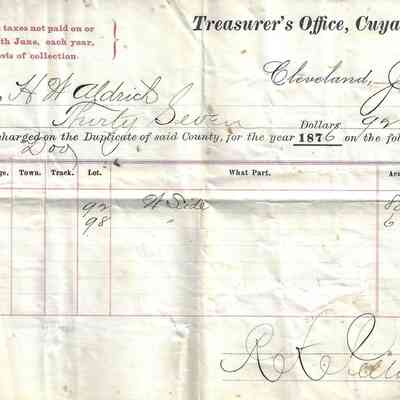 taxes not paid on or
th June, each year,
sts of collection.
Treasurer's Office, Cuya
Cleveland, J
H W Aldrich
Thirty Seven Dollars 92
charged on the Duplicate of said County, for the year 1876 on the fol
Dog
ge. Town. Track. Lot. What Part. Acr
92 W Side 80
98 " 6
R E